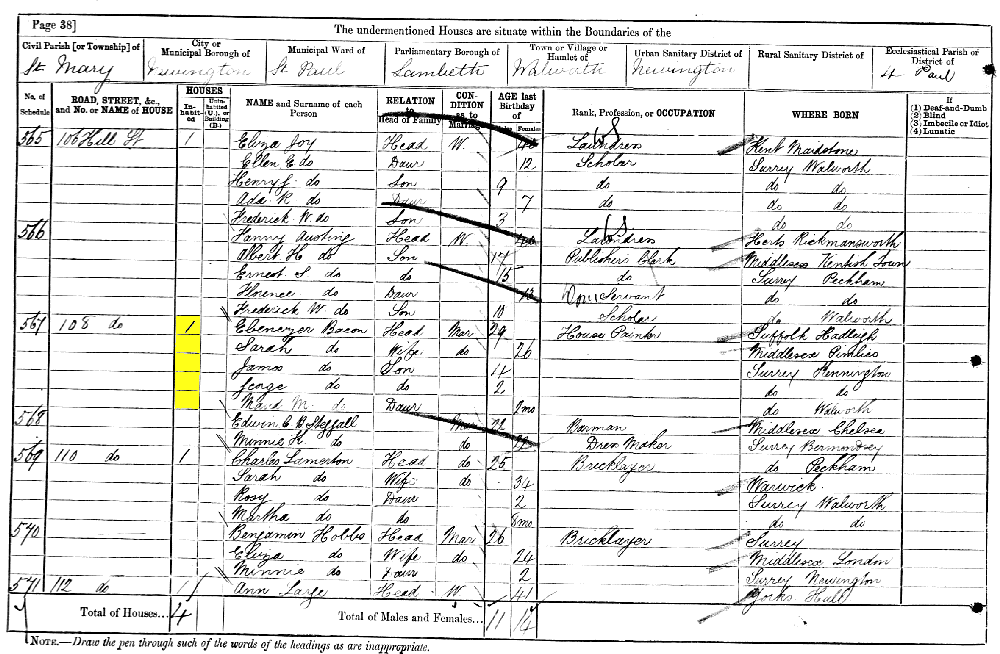 Page 38]
The undermentioned Houses are situate within the Boundaries of the
Civil Parish [or Township] of City or Municipal Borough of Municipal Ward of Parliamentary Borough of Town or Village or Hamlet of Urban Sanitary District of Rural Sanitary District of Ecclesiastical Parish or District of
St Mary Newington St Paul Lambeth Walworth Newington St Paul
No. of Schedule ROAD, STREET, &c., and No. or NAME of HOUSE HOUSES Inhabited Uninhabited (U.), or Building (B.) NAME and Surname of each Person RELATION to Head of Family CONDITION as to Marriage AGE last Birthday of Males Females Rank, Profession, or OCCUPATION WHERE BORN If (1) Deaf-and-Dumb (2) Blind (3) Imbecile or Idiot (4) Lunatic
565 106 Hill St 1 Eliza Joy Head W. Laundress Kent Maidstone
Ellen E do Daur 12 Scholar Surrey Walworth
Henry J. do Son 9 do do do
Ada R do Daur 7 do do do
Frederick W. do Son 3 do do
566 Fanny Austing Head W Laundress Herts Rickmansworth
Albert H do Son 17 Publishers Clerk Middlesex Kentish Town
Ernest S do do 15 do Surrey Peckham
Florence do Daur 13 Servant do do
Frederick W do Son 10 Scholar do Walworth
567 108 do 1 Ebenezer Bacon Head Mar 29 House Painter Suffolk Hadleigh
Sarah do Wife do 26 Middlesex Pimlico
James do Son 4 Surrey Kennington
George do do 2 do do
Maud M. do Daur 2mo do Walworth
568 Edwin C. Steffall Mar Barman Middlesex Chelsea
Minnie K. do do 22 Dress Maker Surrey Bermondsey
569 110 do 1 Charles Lamerton Head do 25 Bricklayer do Peckham
Sarah do Wife do 34 Warwick
Rosy do Daur 2 Surrey Walworth
Martha do do 8mo do do
570 Benjamin Hobbs Head Mar 26 Bricklayer Surrey
Eliza do Wife do 24 Middlesex London
Minnie do Daur 2 Surrey Newington
571 112 do 1 Ann Large Head W 41 Yorks Hull
Total of Houses... 4 Total of Males and Females... 11 14
NOTE.—Draw the pen through such of the words of the headings as are inappropriate.